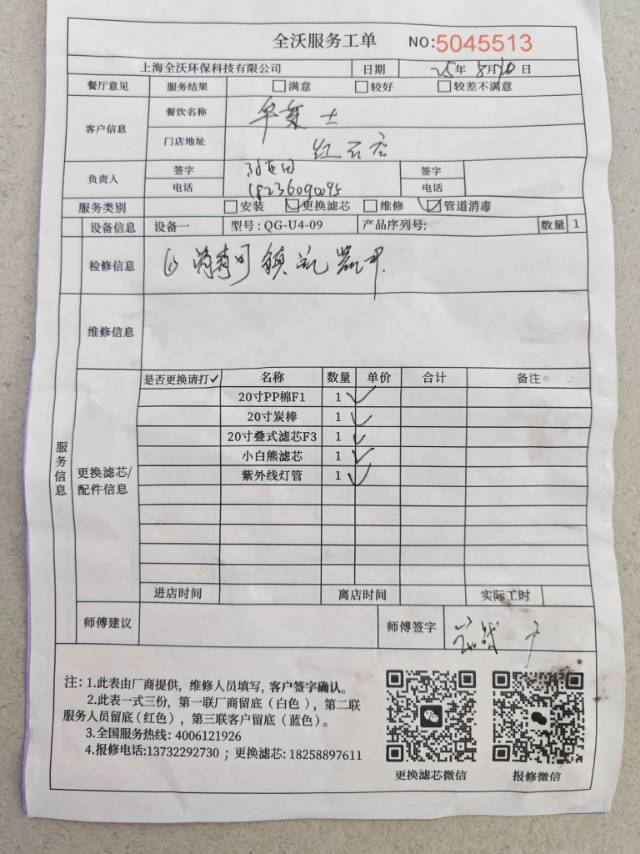 全沃服务工单 NO:5045513
上海全沃环保科技有限公司 日期 25年8月10日
餐厅意见 服务结果 满意 较好 较差不满意
客户信息 餐饮名称 华莱士
门店地址 红石店
负责人 签字 签字
电话 18236090095 电话
服务类别 安装 更换滤芯 维修 管道消毒
设备信息 设备一 型号: QG-U4-09 产品序列号: 数量 1
检修信息
维修信息
服务信息
更换滤芯/配件信息
是否更换请打✓ 名称 数量 单价 合计 备注
20寸PP棉F1 1 ✓
20寸炭棒 1 ✓
20寸叠式滤芯F3 1 ✓
小白熊滤芯 1 ✓
紫外线灯管 1 ✓
进店时间 离店时间 实际工时
师傅建议 师傅签字
注: 1.此表由厂商提供, 维修人员填写, 客户签字确认。
2.此表一式三份, 第一联厂商留底 ( 白色 ), 第二联
服务人员留底 (红色) , 第三联客户留底 ( 蓝色) 。
3.全国服务热线: 4006121926
4.报修电话:13732292730 ; 更换滤芯: 18258897611
更换滤芯微信 报修微信